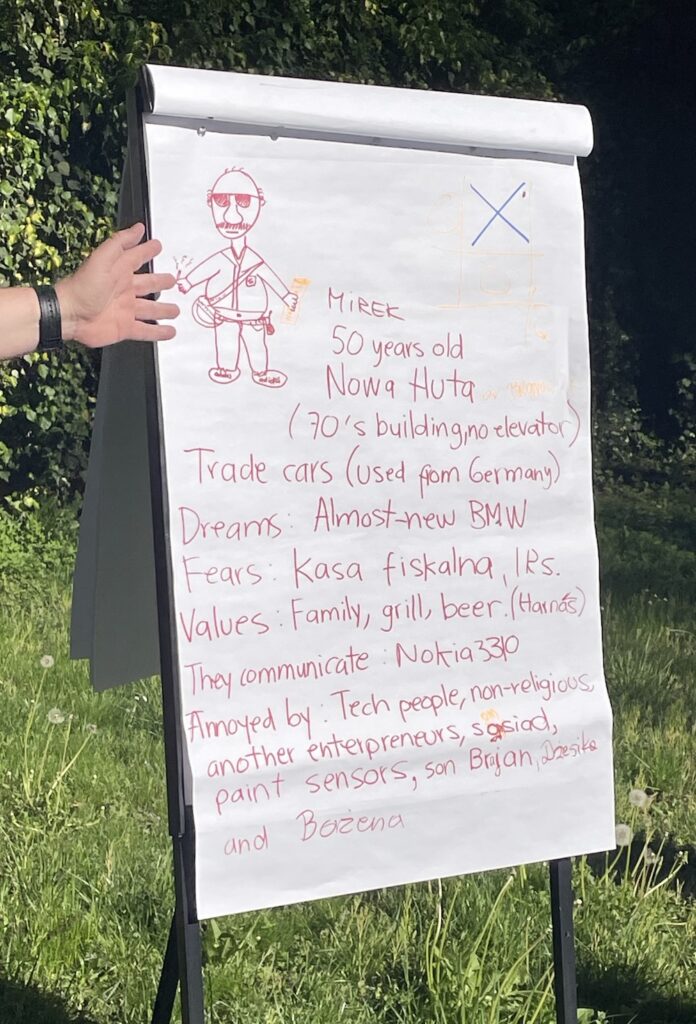 MIREK
50 years old
Nowa Huta
(70's building, no elevator)
Trade cars (used from Germany)
Dreams: Almost-new BMW
Fears: Kasa fiskalna, IRs.
Values: Family, grill, beer. (Harnaś)
They communicate: Nokia 3310
Annoyed by: Tech people, non-religious,
another enterpreneurs, sąsiad,
paint sensors, son Brajan, Dżesika
and Bożena